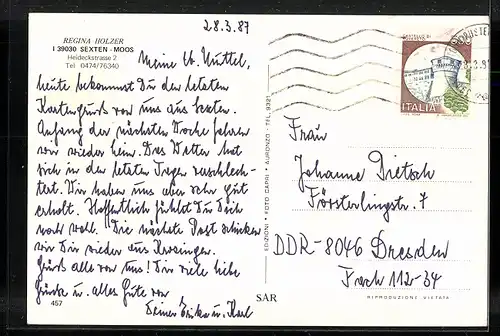 28.3.87
REGINA HOLZER
I 39030 SEXTEN - MOOS
Heideckstrasse 2
Tel. 0474/76340
Meine lb. Muttel,
heute bekommst Du den letzten
Kartengruß von uns aus Sexten.
Anfang der nächsten Woche fahren
wir wieder heim. Das Wetter hat
sich in den letzten Tagen verschlech-
tert. Wir haben uns aber sehr gut
erholt. Hoffentlich fühlst Du Dich
wohl. Die nächste Post schicken
wir Dir wieder aus
Gruß alle von uns! Dir viele liebe
Grüße u. alles Gute von
Deinen Erika u. Karl
457
SAR
EDIZIONI - FOTO CAPRI - AURONZO - TEL. 9321
ITALIA
Frau
Johanne Dietsch
Försterlingstr. 7
DDR-8046 Dresden
Fach 112-34
RIPRODUZIONE VIETATA